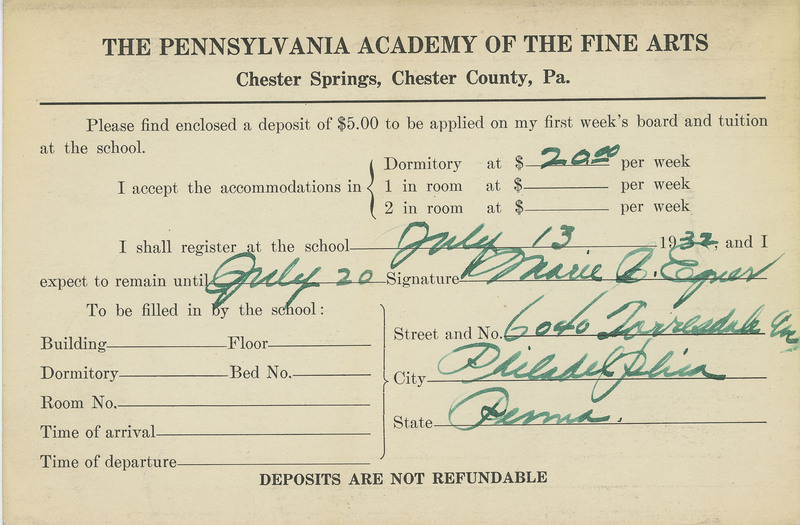 THE PENNSYLVANIA ACADEMY OF THE FINE ARTS
Chester Springs, Chester County, Pa.
Please find enclosed a deposit of $5.00 to be applied on my first week's board and tuition
at the school.
Dormitory at $ 20.00 per week
I accept the accommodations in 1 in room at $ per week
2 in room at $ per week
I shall register at the school July 13 1932, and I
expect to remain until July 20 Signature Marie C. Egner
To be filled in by the school:
Street and No. 6040 Torresdale Ave
Building Floor
City Philadelphia
Dormitory Bed No.
Room No.
State Penna.
Time of arrival
Time of departure
DEPOSITS ARE NOT REFUNDABLE